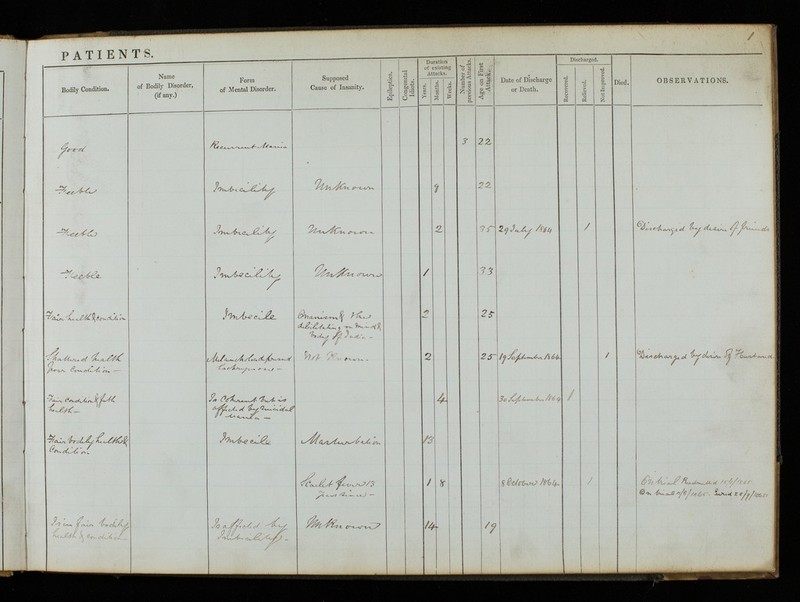 1
PATIENTS.
Bodily Condition.
Name
of Bodily Disorder,
(if any.)
Form
of Mental Disorder.
Supposed
Cause of Insanity.
Epileptics.
Congenital
Idiots.
Duration
of existing
Attacks.
Years.
Months.
Weeks.
Number of
previous Attacks.
Age on First
Attack.
Date of Discharge
or Death.
Discharged.
Recovered.
Relieved.
Not Improved.
Died.
OBSERVATIONS.
Good Recurrent Mania 3 22
Feeble Imbecility Unknown 22
Feeble Imbecility Unknown 2 29 July 1864 1 Discharged by desire of friends
Feeble Imbecility Unknown 1 33
Fair health & condition Imbecile Onanism & the 2 25
debilitating on mind &
body of India
Shattered health Melancholia Not Known 2 25 19 September 1864 1 Discharged by desire of Husband
poor Condition
Fair condition & health Is Coherent but is 4 30 September 1864 1
affected by Suicidal
Mania
Fair bodily health & Imbecile Masturbation 13
Condition
Scarlet fever 13 1 8 8 October 1864 1 On trial
years since On trial
Is in fair bodily Is affected by Unknown 14 19
health & condition Imbecility